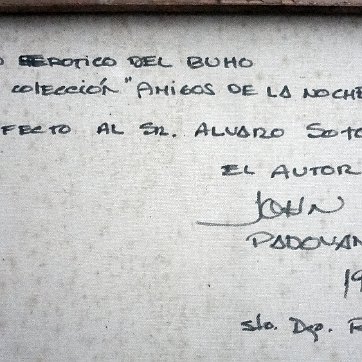 O EROTICO DEL BUHO
COLECCIÓN "AMIGOS DE LA NOCHE
FECTO AL SR. ALVARO SOTO
EL AUTOR
JOHN
PADOVAN
19
Sto. Dgo. R